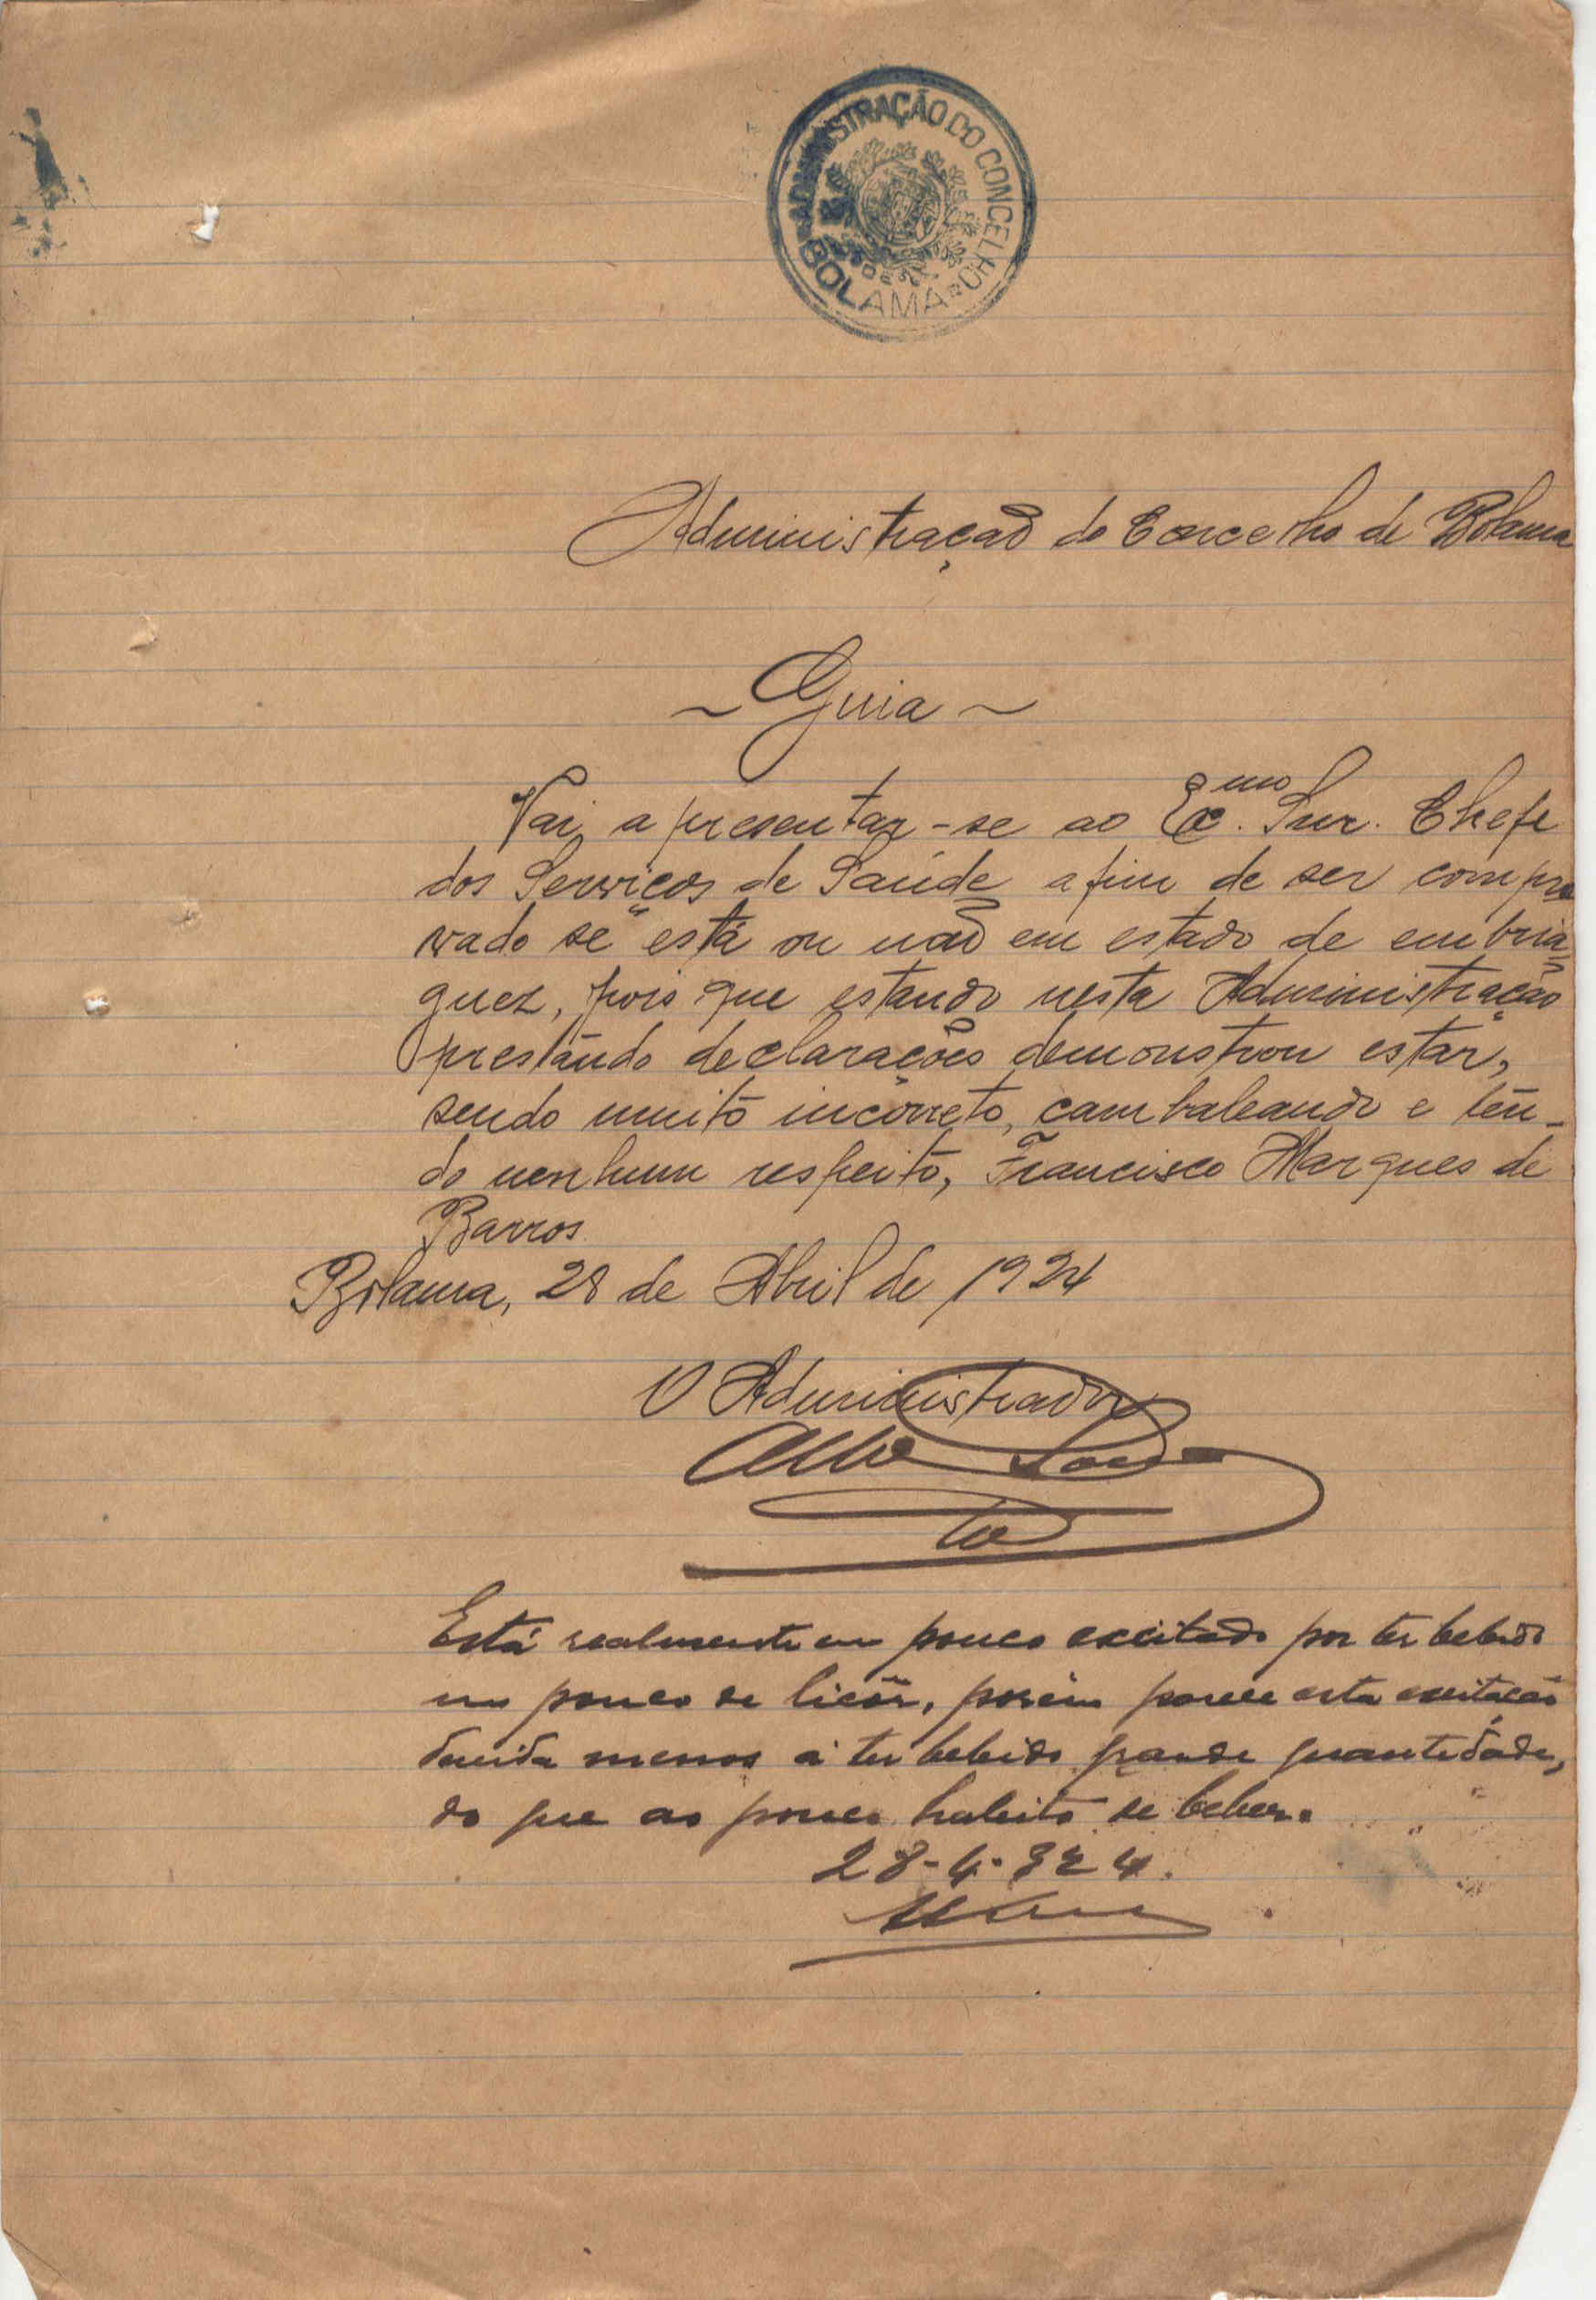 ADMINISTRAÇÃO DO CONCELHO
BOLAMA
Administração do Concelho de Bolama
~ Guia ~
Vai apresentar-se ao Exc.mo Snr. Chefe
dos Serviços de Saúde afim de ser compro
vado se está ou não em estado de embria=
guez, pois que estando nesta Administração
prestando declarações demonstrou estar,
sendo muito incorreto, cambaleando e ten-
do nenhum respeito, Francisco Marques de
Barros
Bolama, 28 de Abril de 1924
O Administrador
Está realmente um pouco excitado por ter bebido
um pouco de licôr, porém parece esta excitação
devida menos a ter bebido grande quantidade,
do que ao pouco habito de beber.
28-4-924.